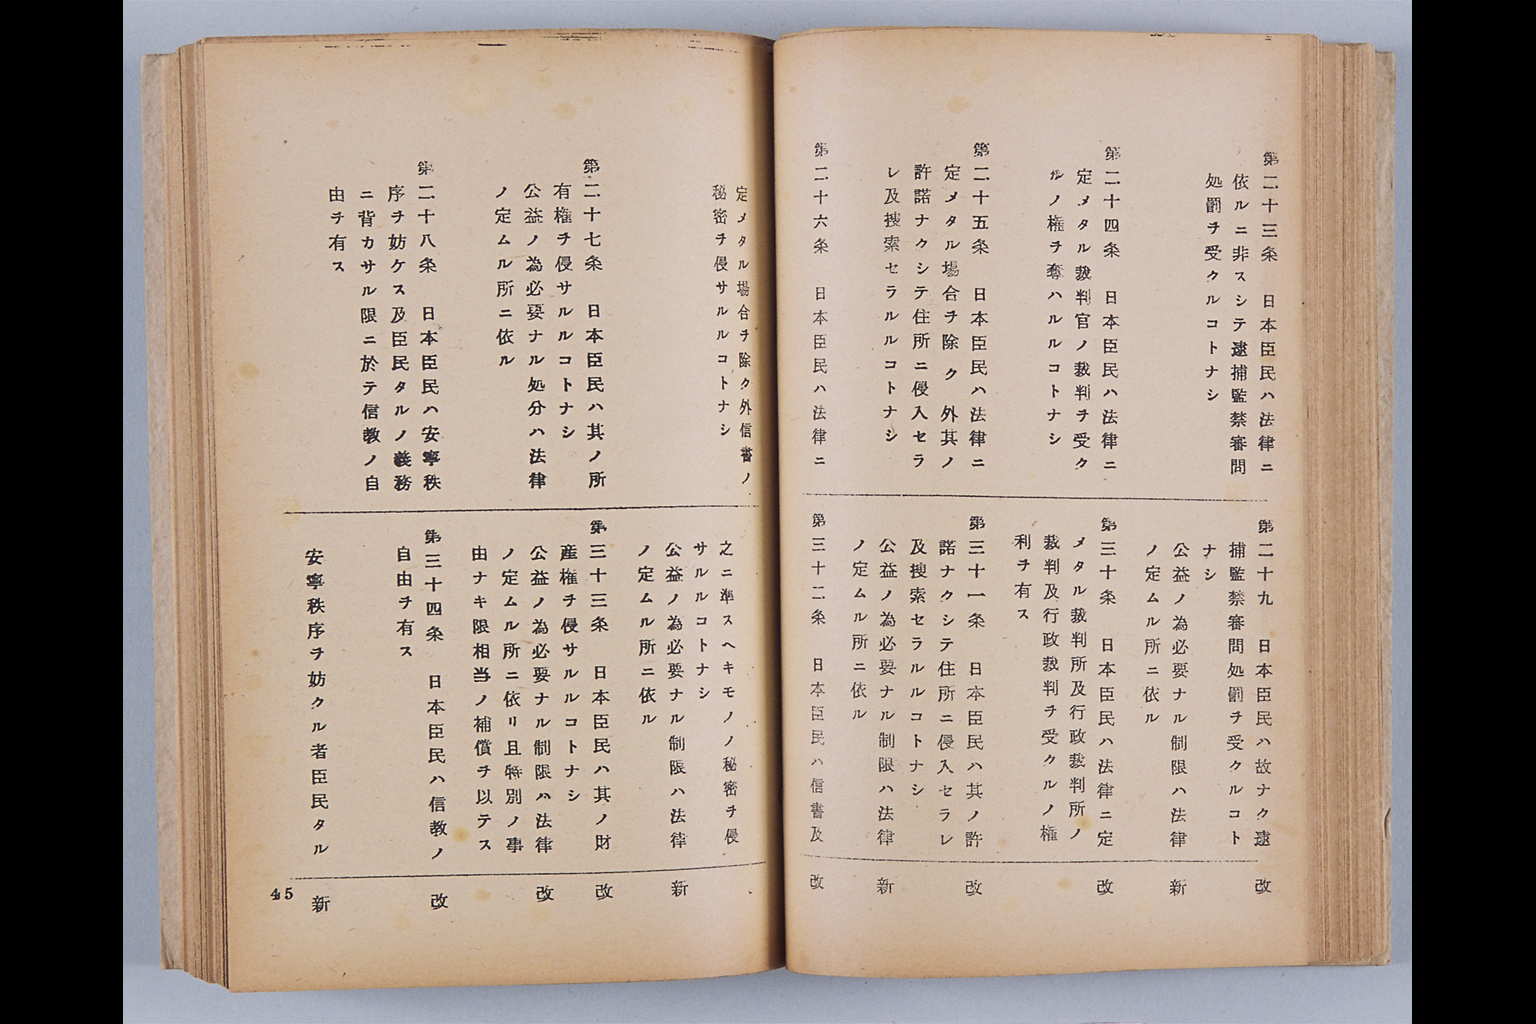 第二十三条　日本臣民ハ法律ニ
依ルニ非スシテ逮捕監禁審問
処罰ヲ受クルコトナシ
第二十四条　日本臣民ハ法律ニ
定メタル裁判官ノ裁判ヲ受ク
ルノ権ヲ奪ハルルコトナシ
第二十五条　日本臣民ハ法律ニ
定メタル場合ヲ除ク外其ノ
許諾ナクシテ住所ニ侵入セラ
レ及捜索セラルルコトナシ
第二十六条　日本臣民ハ法律ニ
第二十九　日本臣民ハ故ナク逮
捕監禁審問処罰ヲ受クルコト
ナシ
公益ノ為必要ナル制限ハ法律
ノ定ムル所ニ依ル
第三十条　日本臣民ハ法律ニ定
メタル裁判所及行政裁判所ノ
裁判及行政裁判ヲ受クルノ権
利ヲ有ス
第三十一条　日本臣民ハ其ノ許
諾ナクシテ住所ニ侵入セラレ
及捜索セラルルコトナシ
公益ノ為必要ナル制限ハ法律
ノ定ムル所ニ依ル
第三十二条　日本臣民ハ信書及
改
新
改
改
新
改
定メタル場合ヲ除ク外信書ノ
秘密ヲ侵サルルコトナシ
第二十七条　日本臣民ハ其ノ所
有権ヲ侵サルルコトナシ
公益ノ為必要ナル処分ハ法律
ノ定ムル所ニ依ル
第二十八条　日本臣民ハ安寧秩
序ヲ妨ケス及臣民タルノ義務
ニ背カサル限ニ於テ信教ノ自
由ヲ有ス
之ニ準スヘキモノノ秘密ヲ侵
サルルコトナシ
公益ノ為必要ナル制限ハ法律
ノ定ムル所ニ依ル
第三十三条　日本臣民ハ其ノ財
産権ヲ侵サルルコトナシ
公益ノ為必要ナル制限ハ法律
ノ定ムル所ニ依リ且特別ノ事
由ナキ限相当ノ補償ヲ以テス
第三十四条　日本臣民ハ信教ノ
自由ヲ有ス
安寧秩序ヲ妨クル者臣民タル
新
改
改
改
新
45